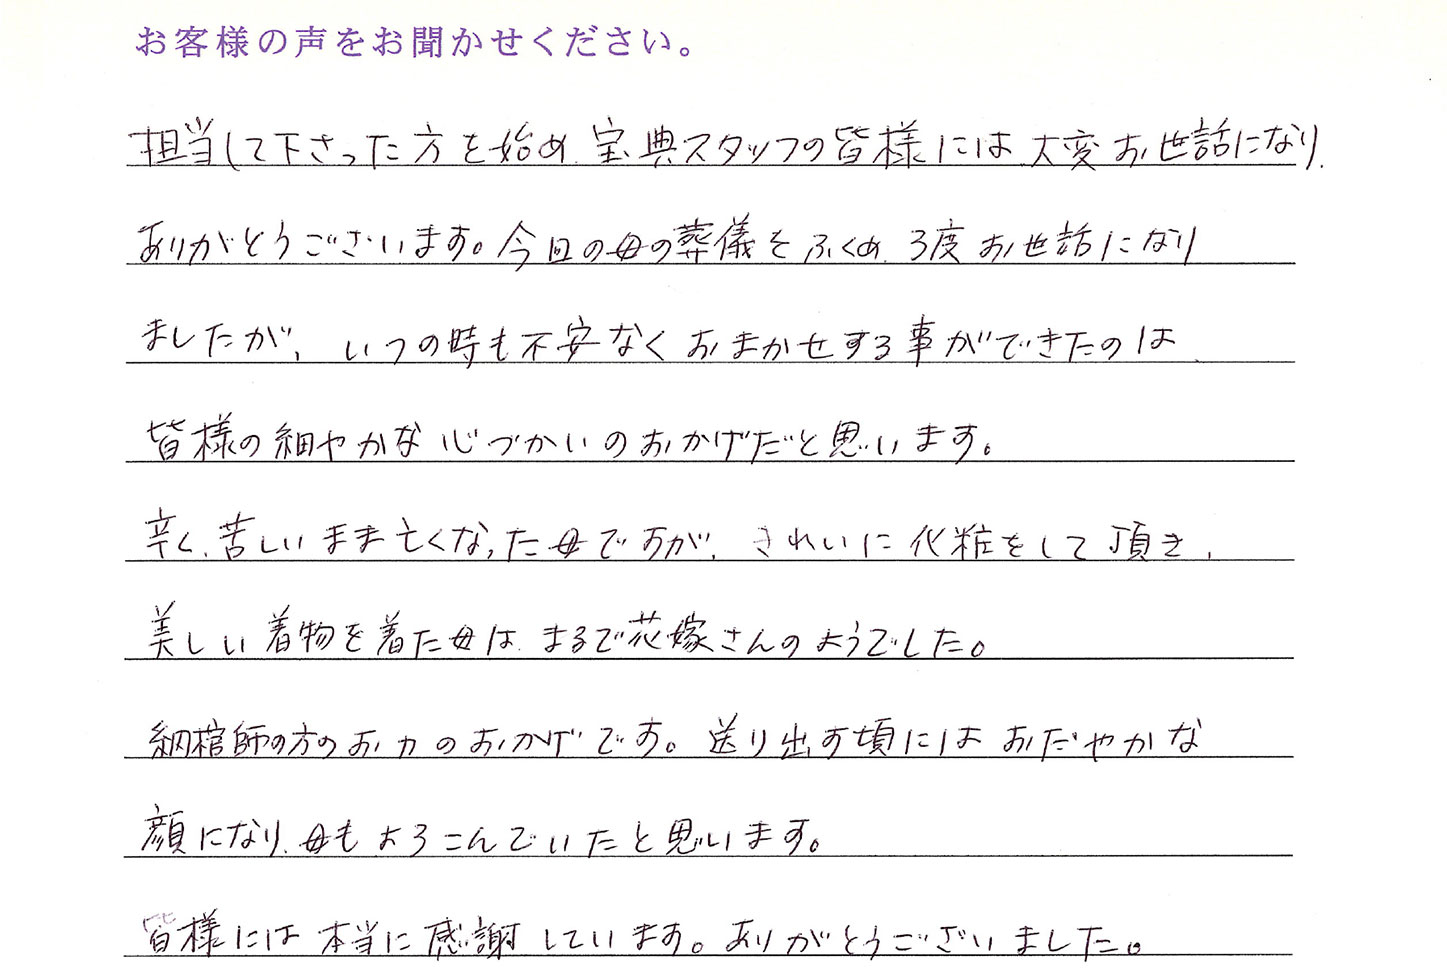 お客様の声をお聞かせください。
担当して下さった方を始め、宝典スタッフの皆様には大変お世話になり、
ありがとうございます。今回の母の葬儀をふくめ、3度お世話になり
ましたが、いつの時も不安なくおまかせする事ができたのは、
皆様の細やかな心づかいのおかげだと思います。
辛く、苦しいまま亡くなった母ですが、きれいに化粧をして頂き、
美しい着物を着た母は、まるで花嫁さんのようでした。
納棺師の方のお力のおかげです。送り出す頃にはおだやかな
顔になり、母もよろこんでいたと思います。
皆様には本当に感謝しています。ありがとうございました。